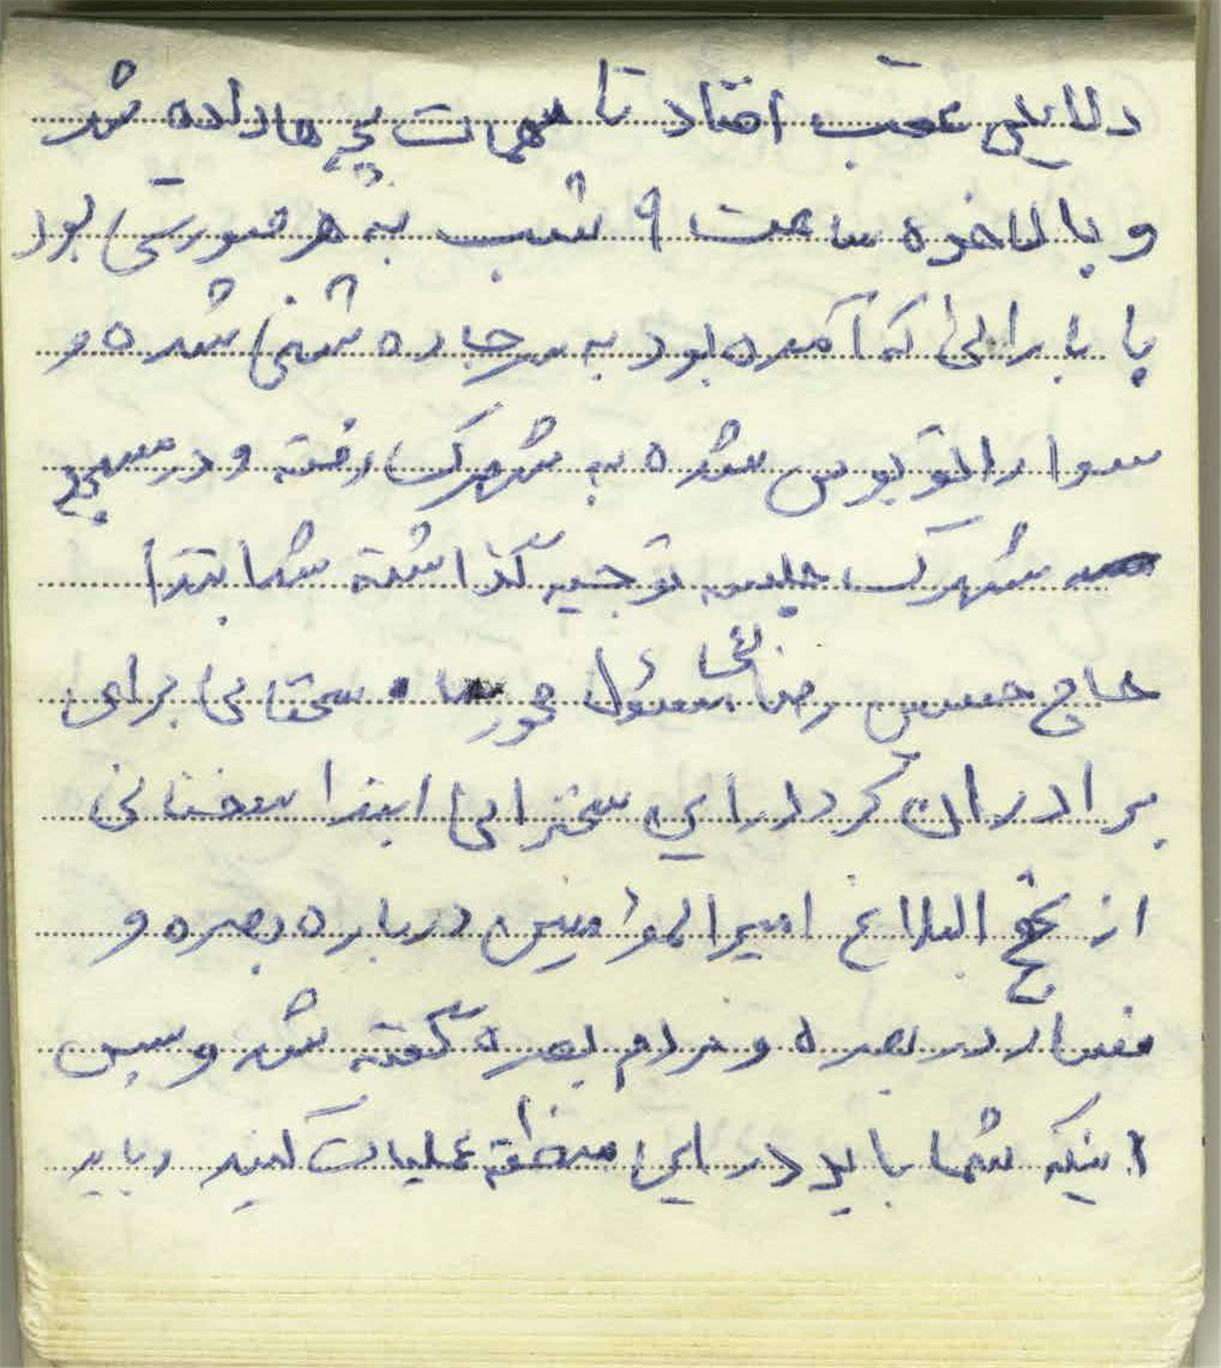 دلایلی عقب افتاد تا مهمات بچه ها داده شد
و بالاخره ساعت ۹ شب به هر صورتی بود
با بارانی که آمده بود به سر جاده شنی شده و
سوار اتوبوس شده به شهرک رفته و در مسجد
شهرک جلسه توجیه گذاشته شد ابتدا
حاج حسین رضائی مسئول محور سخنانی برای
برادران کرد در این سخنرانی ابتدا سخنانی
از نهج البلاغ امیرالمؤمنین درباره بصره و
فساد در بصره و مردم بصره گفته شد و سپس
اینکه شما باید در این منطقه عملیات کنید و باید